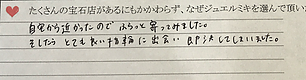 たくさんの宝石店があるにもかかわらず、なぜジュエルミキを選んで頂い
自宅から近かったので ふらっと寄ってみました。
そしたら とても良い指輪に出会い 即決してしまいました。